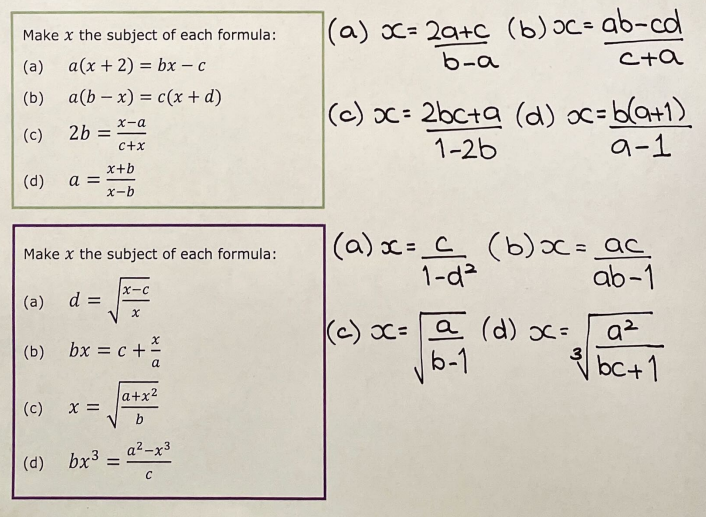 Make x the subject of each formula:
(a) a(x + 2) = bx − c
(b) a(b − x) = c(x + d)
(c) 2b = (x−a)/(c+x)
(d) a = (x+b)/(x−b)
(a) x = (2a+c)/(b−a) (b) x = (ab−cd)/(c+a)
(c) x = (2bc+a)/(1−2b) (d) x = b(a+1)/(a−1)
Make x the subject of each formula:
(a) d = √((x−c)/x)
(b) bx = c + x/a
(c) x = √((a+x²)/b)
(d) bx³ = (a²−x³)/c
(a) x = c/(1−d²) (b) x = ac/(ab−1)
(c) x = √(a/(b−1)) (d) x = ³√(a²/(bc+1))